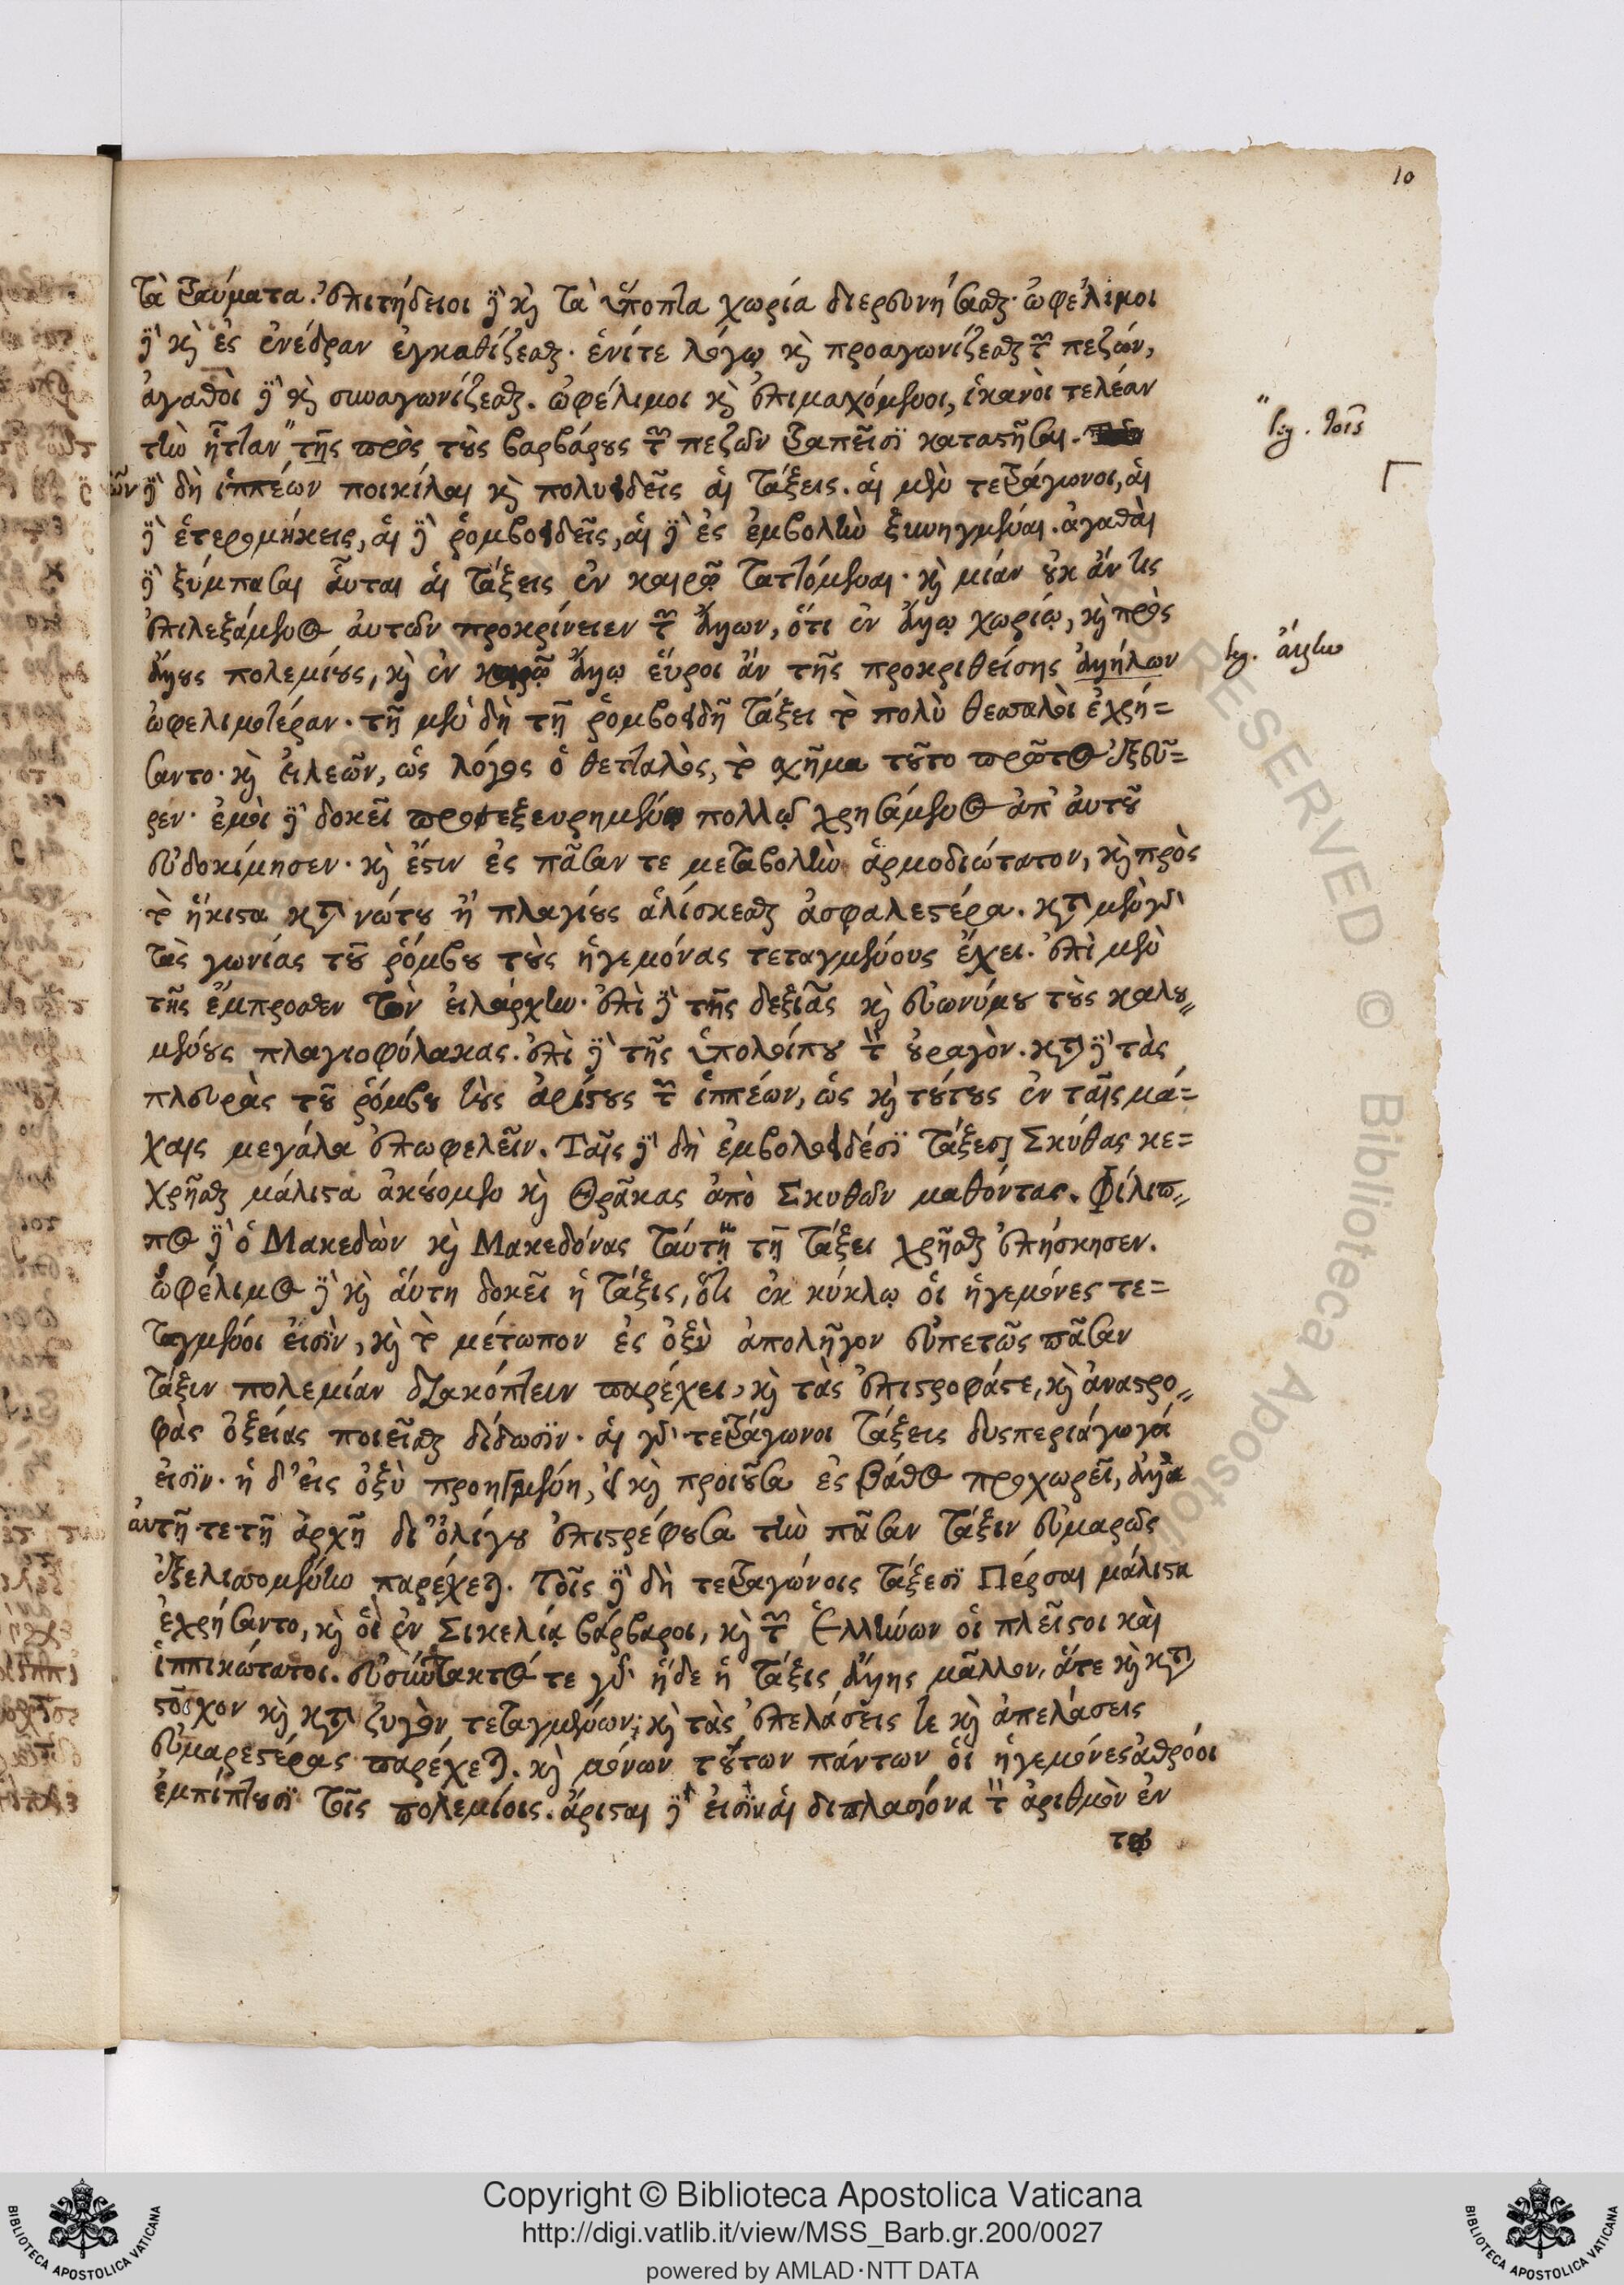 10
τὰ τραύματα. ἐπιτήδειοι δὲ καὶ τὰ ὕποπτα χωρία διερευνήσασθαι· ὠφέλιμοι
δὲ καὶ ἐς ἐνέδραν ἐγκαθίζεσθαι. ἑνίτε λόγῳ καὶ προαγωνίζεσθαι τῶν πεζῶν,
ἀγαθοὶ δὲ καὶ συναγωνίζεσθαι. ὠφέλιμοι καὶ ἐπιμαχόμενοι, ἱκανοὶ τελέαν
τὴν ἧτταν" τῆς πρὸς τοὺς βαρβάρους τῶν πεζῶν τραπεῖσι καταστῆσαι.
" leg. τοῖς
τῶν δὲ δὴ ἱππέων ποικίλαι καὶ πολυειδεῖς αἱ τάξεις. αἱ μὲν τετράγωνοι, αἱ
δὲ ἑτερομήκεις, αἱ δὲ ῥομβοειδεῖς, αἱ δὲ ἐς ἐμβολὴν ξυνηγμέναι. ἀγαθαὶ
δὲ ξύμπασαι αὗται αἱ τάξεις ἐν καιρῷ ταττόμεναι· καὶ μίαν οὐκ ἄν τις
ἐπιλεξάμενος αὐτῶν προκρίνειεν τῶν ἄλλων, ὅτι ἐν ἄλλῳ χωρίῳ, καὶ πρὸς
ἄλλους πολεμίους, καὶ ἐν καιρῷ ἄλλῳ εὕροι ἂν τῆς προκριθείσης ἀλλήλων
leg. ἄλλην
ὠφελιμοτέραν. τῇ μὲν δὴ τῇ ῥομβοειδῆ τάξει τὸ πολὺ θεσσαλοὶ ἐχρή=
σαντο. καὶ εἰλεῶν, ὡς λόγος ὁ θετταλὸς, τὸ σχῆμα τοῦτο πρῶτος ἐξεῦ=
ρεν· ἐμοὶ δὲ δοκεῖ προεξευρημένῳ πολλῷ χρησάμενος ἀπ' αὐτοῦ
εὐδοκίμησεν. καὶ ἔστιν ἐς πᾶσαν τε μεταβολὴν ἁρμοδιώτατον, καὶ πρὸς
τὸ ἥκιστα κατὰ νώτου ἢ πλαγίους ἁλίσκεσθαι ἀσφαλεστέρα. κατὰ μὲν γὰρ
τὰς γωνίας τοῦ ῥόμβου τοὺς ἡγεμόνας τεταγμένους ἔχει. ἐπὶ μὲν
τῆς ἔμπροσθεν τὸν εἰλάρχην. ἐπὶ δὲ τῆς δεξιᾶς καὶ εὐωνύμου τοὺς καλου=
μένους πλαγιοφύλακας. ἐπὶ δὲ τῆς ὑπολοίπου τὸν οὐραγὸν. κατὰ δὲ τὰς
πλευρὰς τοῦ ῥόμβου τοὺς ἀρίστους τῶν ἱππέων, ὡς καὶ τούτους ἐν ταῖς μά=
χαις μεγάλα ἐπωφελεῖν. Ταῖς δὲ δὴ ἐμβολοειδέσι τάξεσι Σκύθας κε=
χρῆσθαι μάλιστα ἀκούομεν καὶ Θρᾶκας ἀπὸ Σκυθῶν μαθόντας. Φίλιπ=
πος δὲ ὁ Μακεδὼν καὶ Μακεδόνας ταύτῃ τῇ τάξει χρῆσθαι ἐπήσκησεν.
ὠφέλιμος δὲ καὶ αὕτη δοκεῖ ἡ τάξις, ὅτι ἐκ κύκλῳ οἱ ἡγεμόνες τε=
ταγμένοι εἰσὶν, καὶ τὸ μέτωπον ἐς ὀξὺ ἀπολῆγον εὐπετῶς πᾶσαν
τάξιν πολεμίαν διακόπτειν παρέχει, καὶ τὰς ἐπιστροφάς τε, καὶ ἀναστρο=
φὰς ὀξείας ποιεῖσθαι δίδωσιν. αἱ γὰρ τετράγωνοι τάξεις δυσπεριάγωγοί
εἰσιν. ἡ δ' εἰς ὀξὺ προηγμένη, εἰ καὶ προιοῦσα ἐς βάθος προχωρεῖ, ἀλλὰ
αὐτῇ τε τῇ ἀρχῇ δι' ὀλίγου ἐπιστρέφουσα τὴν πᾶσαν τάξιν εὐμαρῶς
ἐξελισσομένην παρέχεται. Τοῖς δὲ δὴ τετραγώνοις τάξεσι Πέρσαι μάλιστα
ἐχρήσαντο, καὶ οἱ ἐν Σικελίᾳ βάρβαροι, καὶ τῶν Ἑλλήνων οἱ πλεῖστοι καὶ
ἱππικώτατοι. εὐσύντακτός τε γὰρ ἥδε ἡ τάξις ἄλλης μᾶλλον, ἅτε καὶ κατὰ
στοῖχον καὶ κατὰ ζυγὸν τεταγμένων; καὶ τὰς ἐπελάσεις τε καὶ ἀπελάσεις
εὐμαρεστέρας παρέχεται. καὶ μόνων τούτων πάντων οἱ ἡγεμόνες ἀθρόοι
ἐμπίπτουσι τοῖς πολεμίοις. ἄρισται δὲ εἰσὶν αἱ διπλασίονα τὸν ἀριθμὸν ἐν
τῷ
RESERVED © Biblioteca Apostolica
Copyright © Biblioteca Apostolica Vaticana
http://digi.vatlib.it/view/MSS_Barb.gr.200/0027
powered by AMLAD·NTT DATA
BIBLIOTECA APOSTOLICA VATICANA
BIBLIOTECA APOSTOLICA VATICANA